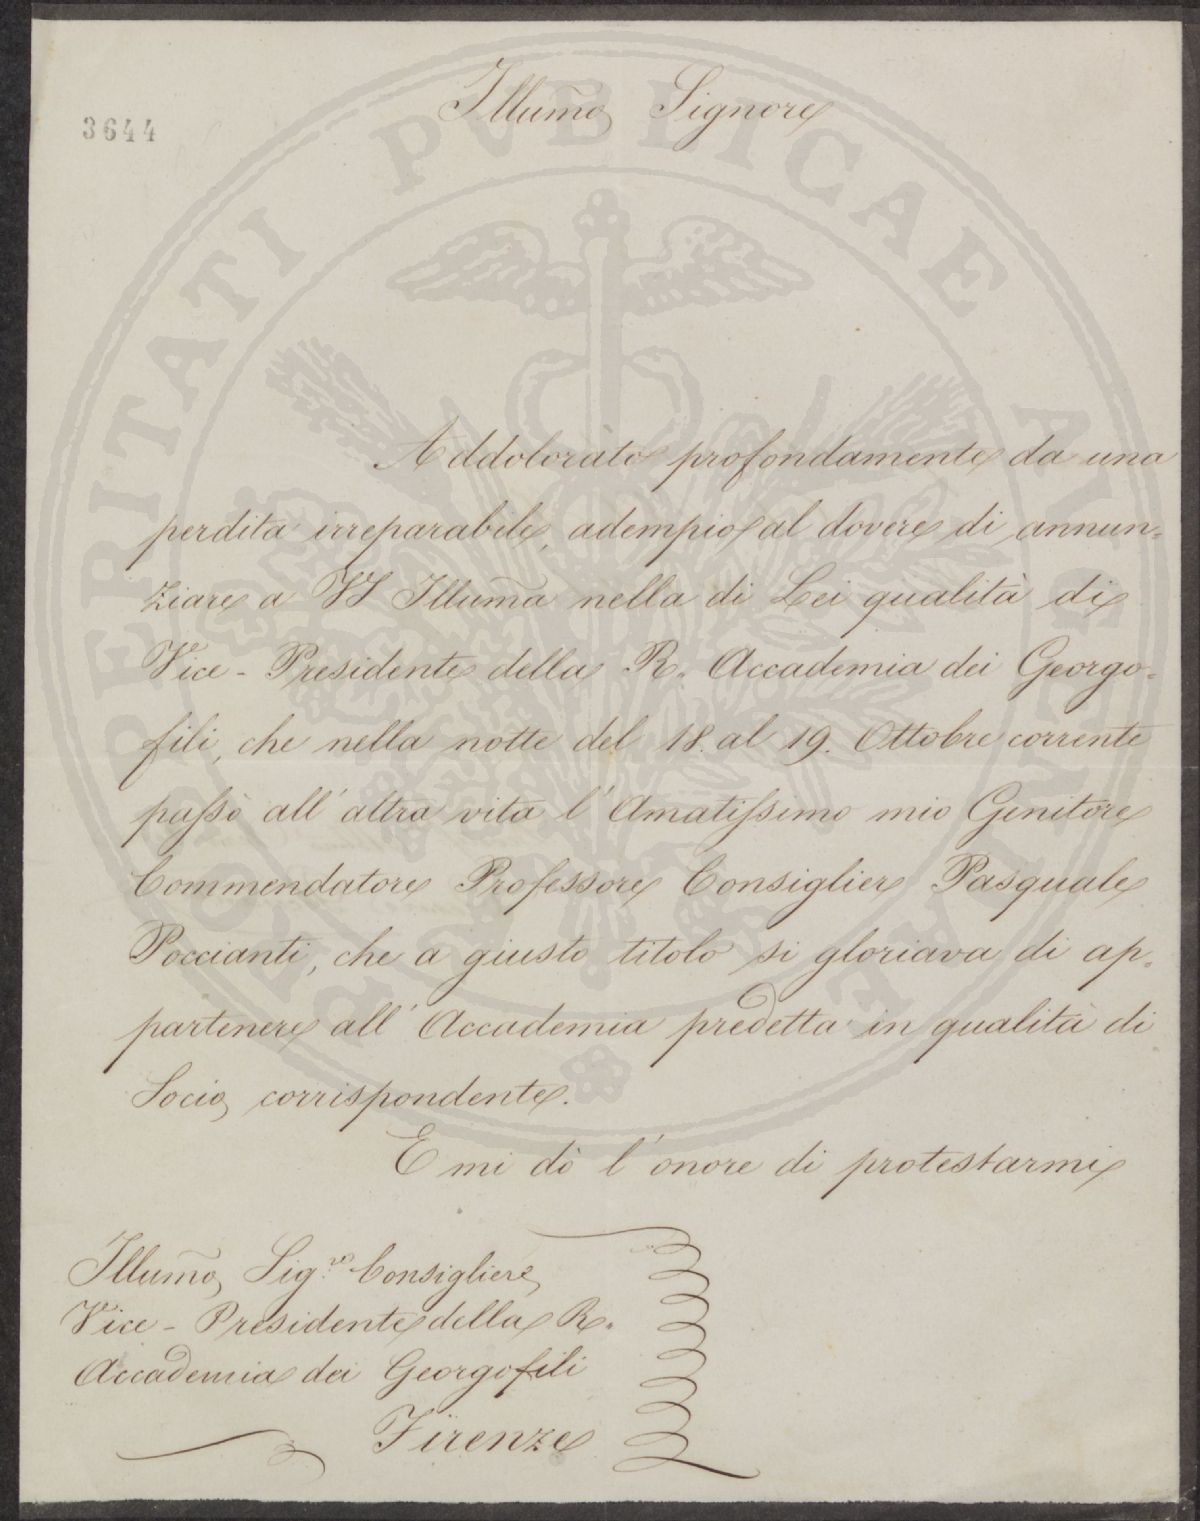 3644
Illum̃o Signore
Addolorato profondamente da una
perdita irreparabile, adempio al dovere di annun-
ziare a VS Illum̃a nella di Lei qualità di
Vice-Presidente della R. Accademia dei Georgo-
fili, che nella notte del 18. al 19. Ottobre corrente
passò all'altra vita l'Amatissimo mio Genitore
Commendatore Professore Consiglier Pasquale
Poccianti, che a giusto titolo si gloriava di ap-
partenere all'Accademia predetta in qualità di
Socio corrispondente.
E mi dò l'onore di protestarmi
Illum̃o Sig.re Consigliere
Vice-Presidente della R.
Accademia dei Georgofili
Firenze
PROSPERITATI PVBLICAE AVGENDAE